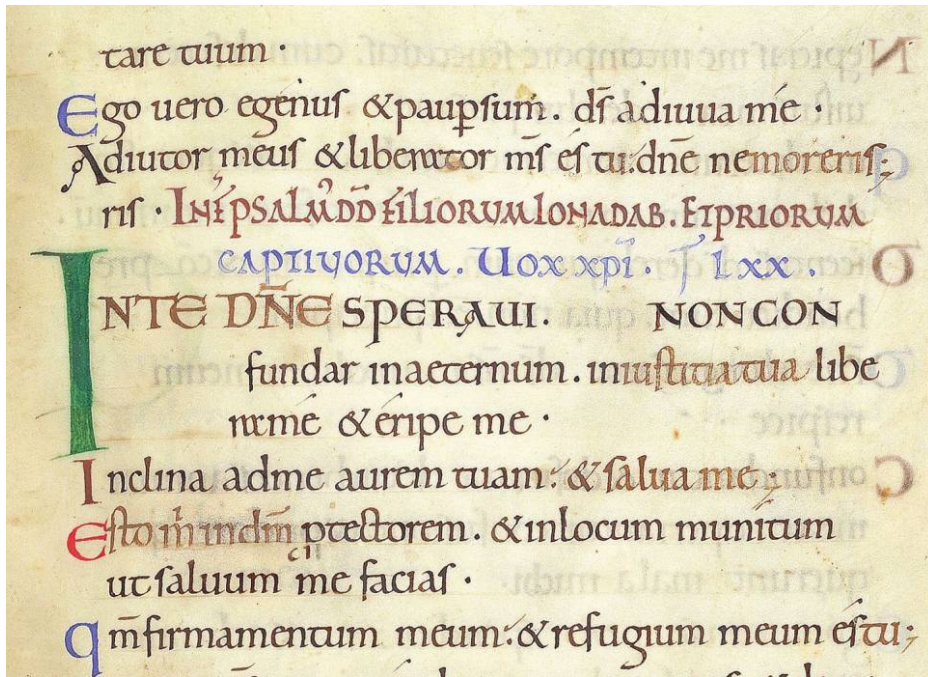 tare tuum ·
Ego uero egenus & paup̱ sum̄. ds̄ adiuua me ·
Adiutor meus & liberator ms̄ es tu: dn̄e ne moreris;
ris · IN FIN̄ PSALM̄ DD̄ FILIORUM IONADAB. ET PRIORUM
CAPTIUORUM. UOX XPI̅. LXX.
INTE DN̄E SPERAUI. NON CON
fundar in aeternum. in iustitia tua libe
ra me & eripe me ·
Inclina ad me aurem tuam: & salua me;
Esto m̄ in dm̄ ꝓtectorem. & in locum munitum
ut saluum me facias ·
qm̄ firmamentum meum: & refugium meum es tu;